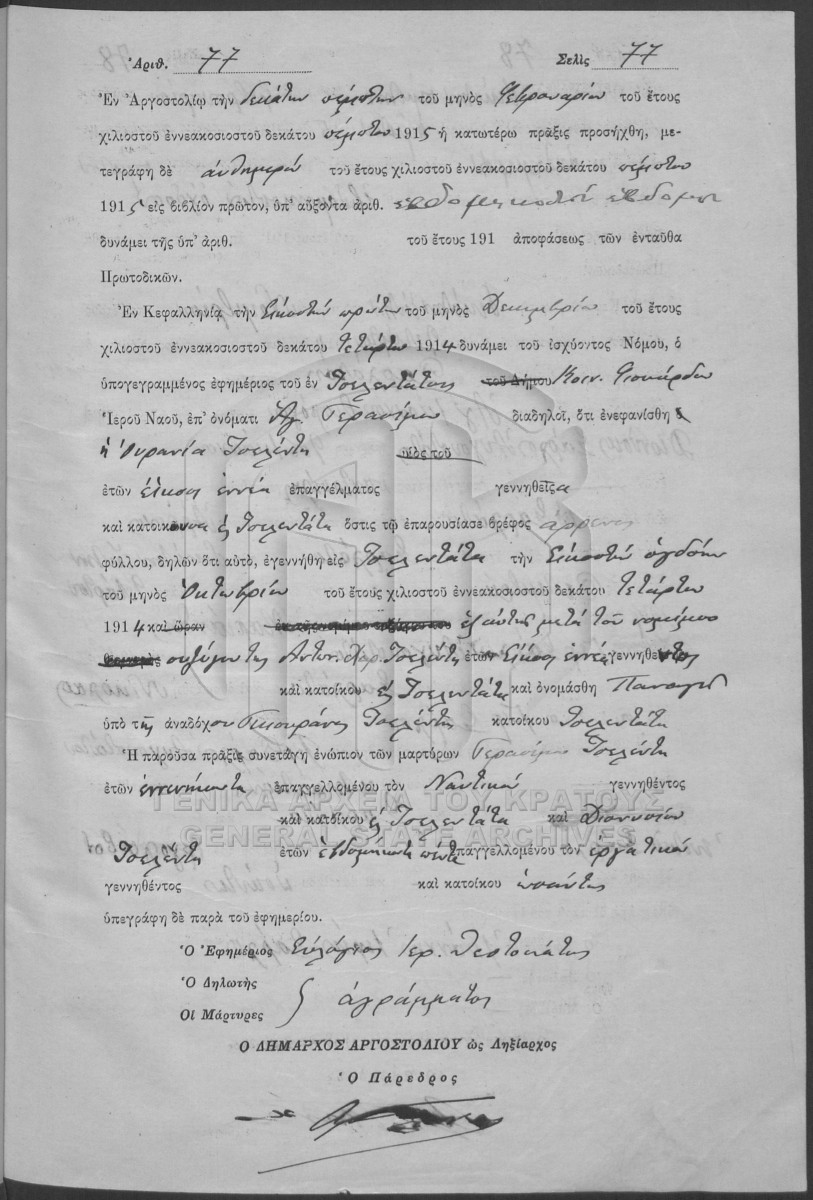 Ἀριθ. 77 Σελὶς 77
Ἐν Ἀργοστολίῳ τὴν δεκάτην πέμπτην τοῦ μηνὸς Φεβρουαρίου τοῦ ἔτους
χιλιοστοῦ ἐννεακοσιοστοῦ δεκάτου πέμπτου 1915 ἡ κατωτέρω πρᾶξις προσήχθη, με-
τεγράφη δὲ αὐθημερὸν τοῦ ἔτους χιλιοστοῦ ἐννεακοσιοστοῦ δεκάτου πέμπτου
1915 εἰς βιβλίον πρῶτον, ὑπ' αὔξοντα ἀριθ. ἑβδομηκοστὸν ἕβδομον
δυνάμει τῆς ὑπ' ἀριθ. τοῦ ἔτους 191 ἀποφάσεως τῶν ἐνταῦθα
Πρωτοδικῶν.
Ἐν Κεφαλληνίᾳ τὴν Εἰκοστὴν πρώτην τοῦ μηνὸς Δεκεμβρίου τοῦ ἔτους
χιλιοστοῦ ἐννεακοσιοστοῦ δεκάτου τετάρτου 1914 δυνάμει τοῦ ἰσχύοντος Νόμου, ὁ
ὑπογεγραμμένος ἐφημέριος τοῦ ἐν Τσελεντάτοις τοῦ Δήμου Κοιν.
Ἱεροῦ Ναοῦ, ἐπ' ὀνόματι Ἁγ. Γερασίμου διαδηλοῖ, ὅτι ἐνεφανίσθη ὁ
ἡ Οὐρανία Τσελέντη υἱὸς τοῦ
ἐτῶν εἴκοσι ἐννέα ἐπαγγέλματος γεννηθεῖσα
καὶ κατοικοῦσα εἰς Τσελεντάτα ὅστις τῷ ἐπαρουσίασε βρέφος ἄρρενος
φύλλου, δηλῶν ὅτι αὐτὸ, ἐγεννήθη εἰς Τσελεντάτα τὴν Εἰκοστὴν ὀγδόην
τοῦ μηνὸς Ὀκτωβρίου τοῦ ἔτους χιλιοστοῦ ἐννεακοσιοστοῦ δεκάτου τετάρτου
1914 καὶ ὥραν ἐξ αὐτῆς μετὰ τοῦ νομίμου
συζύγου της Ἀντων. Χαρ. Τσελέντη ἐτῶν Εἴκοσι ἐννέα γεννηθέντος
καὶ κατοίκου εἰς Τσελεντάτα καὶ ὀνομάσθη Παναγῆς
ὑπὸ τῆς ἀναδόχου Τσελέντη κατοίκου Τσελεντάτα
Ἡ παροῦσα πρᾶξις συνετάγη ἐνώπιον τῶν μαρτύρων Γερασίμου Τσελέντη
ἐτῶν ἐννενήκοντα ἐπαγγελλομένου τὸν Ναυτικὸν γεννηθέντος
καὶ κατοίκου εἰς Τσελεντάτα καὶ Διονυσίου
Τσελέντη ἐτῶν ἑβδομήκοντα πέντε ἐπαγγελλομένου τὸν ἐργατικὸν
γεννηθέντος καὶ κατοίκου ὡσαύτως
ὑπεγράφη δὲ παρὰ τοῦ ἐφημερίου.
Ὁ Ἐφημέριος Εὐλόγιος Ἱερ.
Ὁ Δηλωτὴς
Οἱ Μάρτυρες } ἀγράμματοι
Ὁ ΔΗΜΑΡΧΟΣ ΑΡΓΟΣΤΟΛΙΟΥ ὡς Ληξίαρχος
Ὁ Πάρεδρος
ΓΕΝΙΚΑ ΑΡΧΕΙΑ ΤΟΥ ΚΡΑΤΟΥΣ
GENERAL STATE ARCHIVES